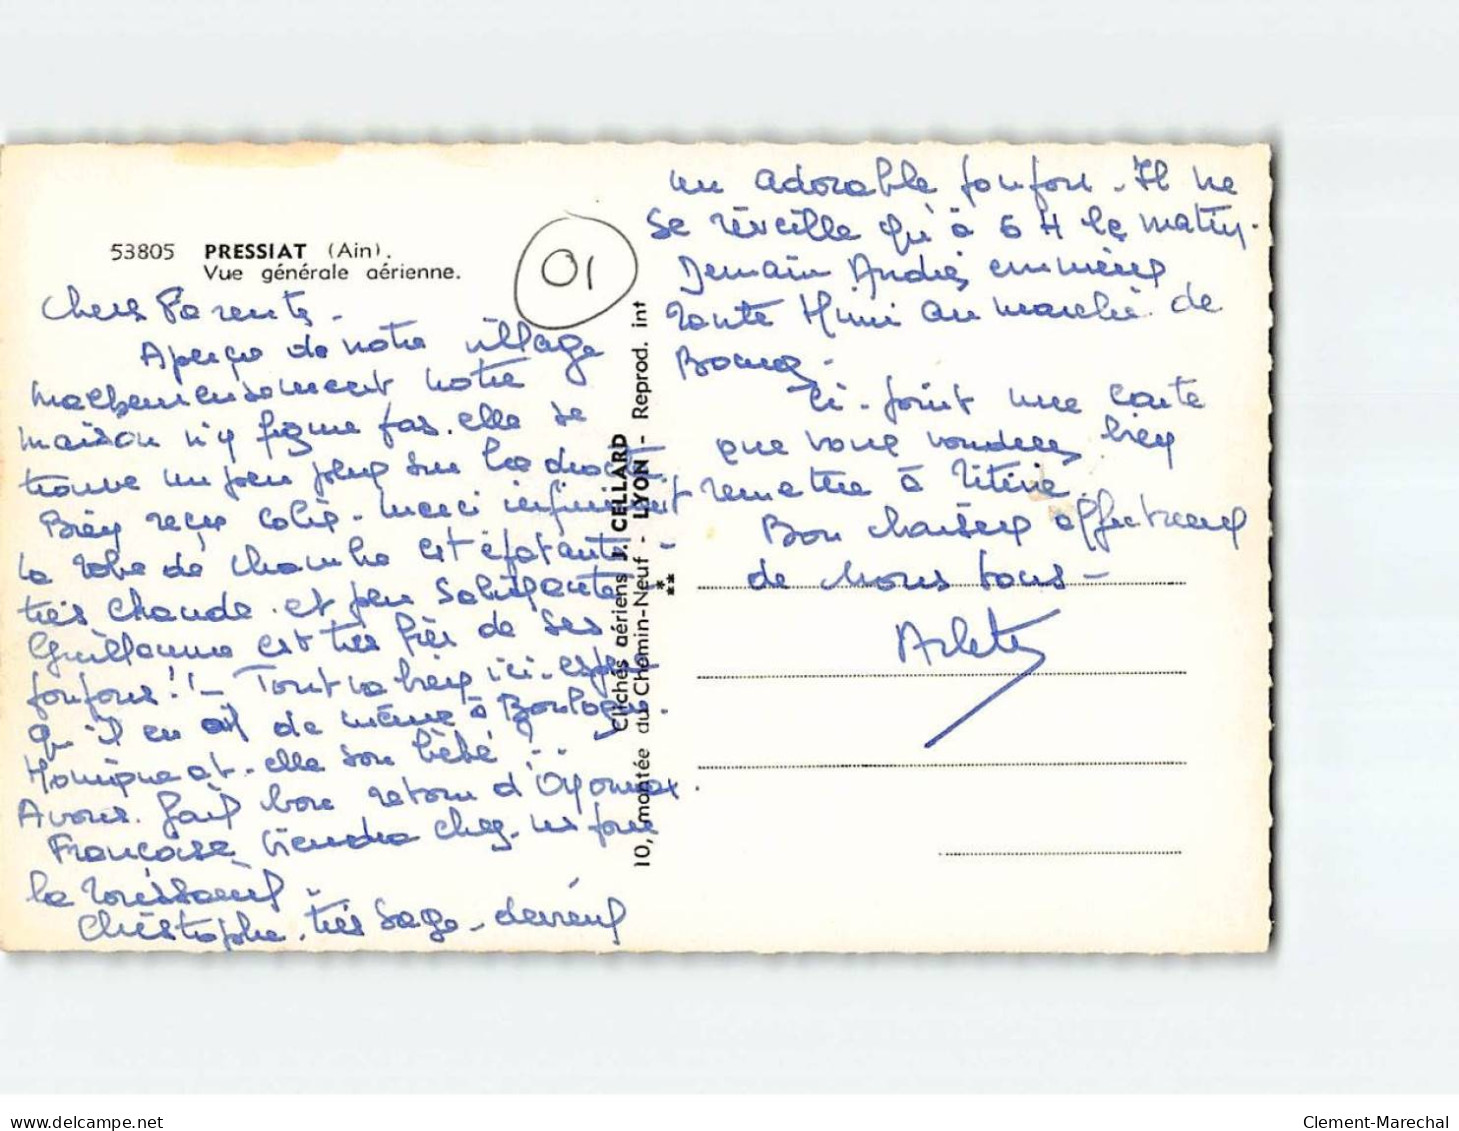 53805 PRESSIAT (Ain).
Vue générale aérienne.
01
Chers Parents -
Aperçu de notre village
malheureusement notre
maison n'y figure pas. elle se
trouve un peu plus sur la droite
Bien reçu colis - Merci infiniment
la robe de chambre est épatante -
très chaude - et peu salissante
Guillaume est très fier de ses
!! - Tout va bien ici - espère
qu'il en est de même à Boulogne.
Monique at-elle son bébé ? ..
Avons fait bon retour d'Oyonnax.
Françoise viendra chez nous pour
la Toussaint
Christophe - très sage - devient
Clichés aériens J. CELLARD
10, montée du Chemin-Neuf - LYON - Reprod. int
un adorable poupon - Il ne
se réveille qu'à 6 H le matin.
Demain André emmène
tante Mimi au marché de
Bourg -
Ci-joint une carte
que vous voudrez bien
remettre à
Bon baisers affectueux
de nous tous -
Arlette
Clement-Marechal
www.delcampe.net